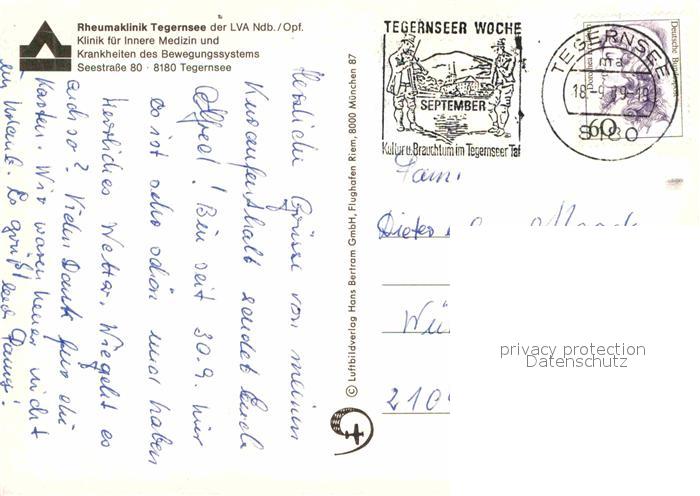 Rheumaklinik Tegernsee der LVA Ndb./Opf.
Klinik für Innere Medizin und
Krankheiten des Bewegungssystems
Seestraße 80 · 8180 Tegernsee
Herzliche Grüsse von meinem
Kuraufenthalt sendet Euch
Alfred! Bin seit 30.9. hier
es ist sehr schön und haben
Herrliches Wetter. Wie geht es
Euch so? Vielen Dank für die
Karten. Wir waren heuer nicht
im Urlaub. Es grüßt
© Luftbildverlag Hans Bertram GmbH, Flughafen Riem, 8000 München 87
TEGERNSEER WOCHE
SEPTEMBER
Kultur u. Brauchtum im Tegernseer Tal
TEGERNSEE
ma
60
Deutsche Bundespost
Fam.
Dieter
Wü
210
privacy protection
Datenschutz